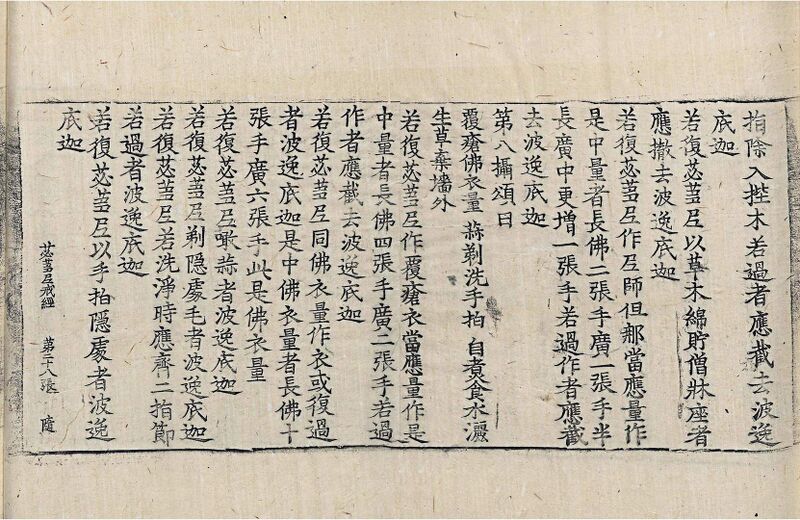 指除入梐木若過者應截去波逸
底迦
若復苾蒭尼以草木綿貯僧牀座者
應撤去波逸底迦
若復苾蒭尼作尼師但那當應量作
是中量者長佛二張手廣一張手半
長廣中更增一張手若過作者應截
去波逸底迦
第八攝頌曰
覆瘡佛衣量 蒜剃洗手拍 自煮食水灑
生草棄墻外
若復苾蒭尼作覆瘡衣當應量作是
中量者長佛四張手廣二張手若過
作者應截去波逸底迦
若復苾蒭尼同佛衣量作衣或復過
者波逸底迦是中佛衣量者長佛十
張手廣六張手此是佛衣量
若復苾蒭尼噉蒜者波逸底迦
若復苾蒭尼剃隱處毛者波逸底迦
若復苾蒭尼若洗淨時應齊二指節
若過者波逸底迦
若復苾蒭尼以手拍隱處者波逸
底迦
苾蒭尼戒經 第二十八張 隨